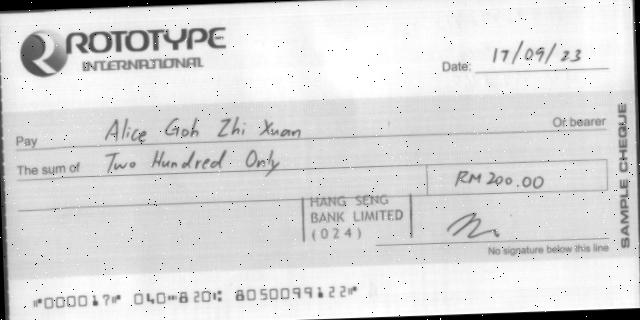 ROTOTYPE
INTERNATIONAL
Date: 17/09/23
Pay Alice Goh Zhi Xuan Or bearer
The sum of Two Hundred Only
RM 200.00
HANG SENG
BANK LIMITED
(024)
No signature below this line
SAMPLE CHEQUE
⑈000017⑈ 040⑉820⑆ 8050099122⑈